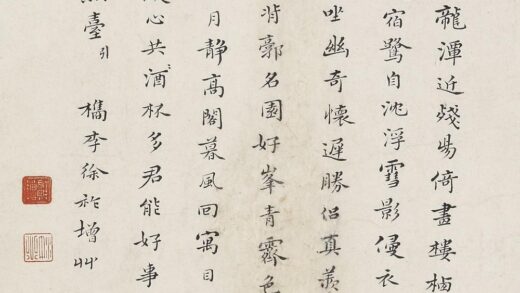 龍潭近殘場倚畫樓楠
宿鷺自洮浮雪影侵衣
坐幽奇懷遲勝侶真羨
背郭名園好峯青霽色
月静高閣暮風回寓目
心共酒杯多君能好事
臺引
檇李徐於增艸